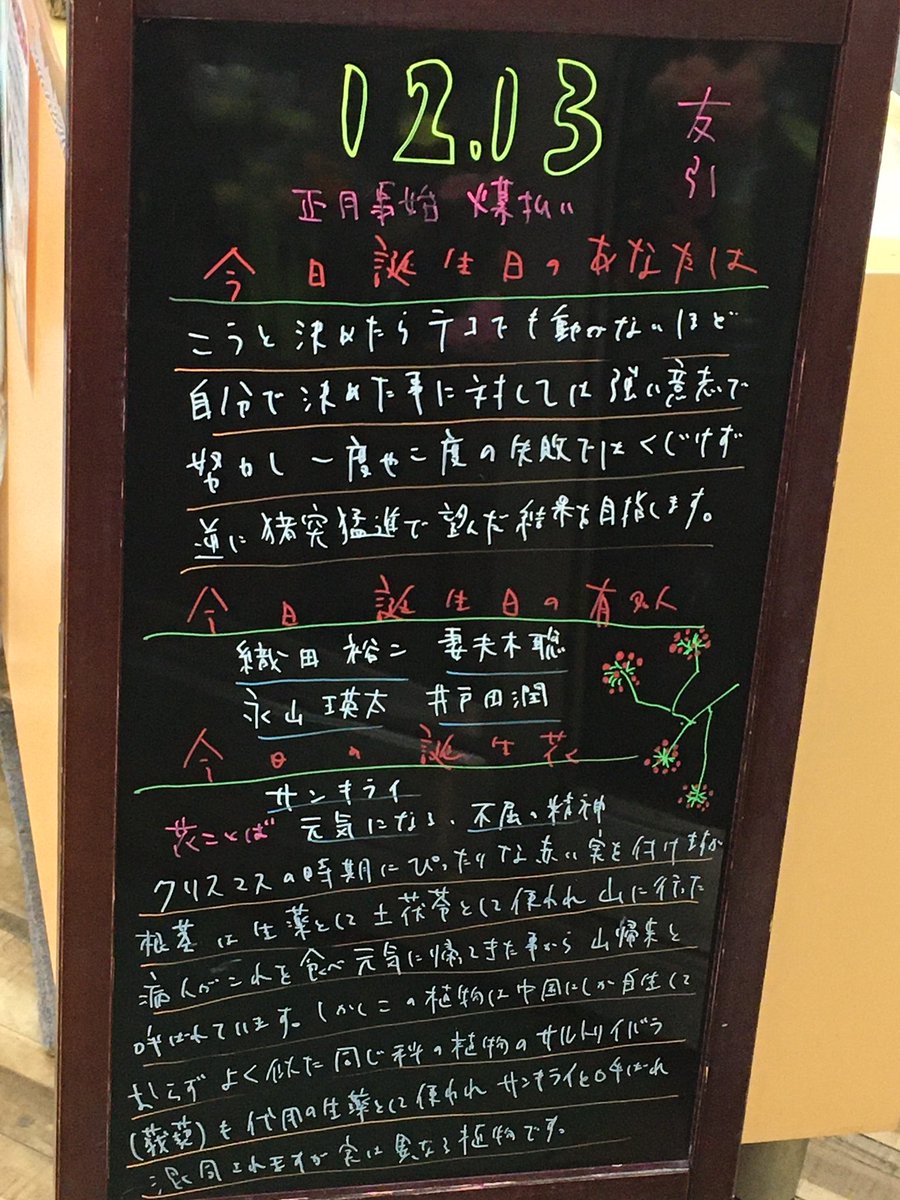 12.13
友引
正月事始 煤払い
今日誕生日のあなたは
こうと決めたらテコでも動かないほど
自分で決めた事に対しては強い意志で
努力し一度や二度の失敗ではくじけず
逆に猪突猛進で望んだ結果を目指します。
今日誕生日の有名人
織田裕二 妻夫木聡
永山瑛太 井戸田潤
今日の誕生花
サンキライ
花ことば 元気になる、不屈の精神
クリスマスの時期にぴったりな赤い実を付けますが
根茎は生薬として土茯苓として使われ山に行った
病人がこれを食べ元気に帰ってきた事から山帰来と
呼ばれています。しかしこの植物は中国にしか自生して
おらずよく似た同じ科の植物のサルトリイバラ
(菝葜)も代用の生薬として使われサンキライと呼ばれ
混同されますが実は異なる植物です。